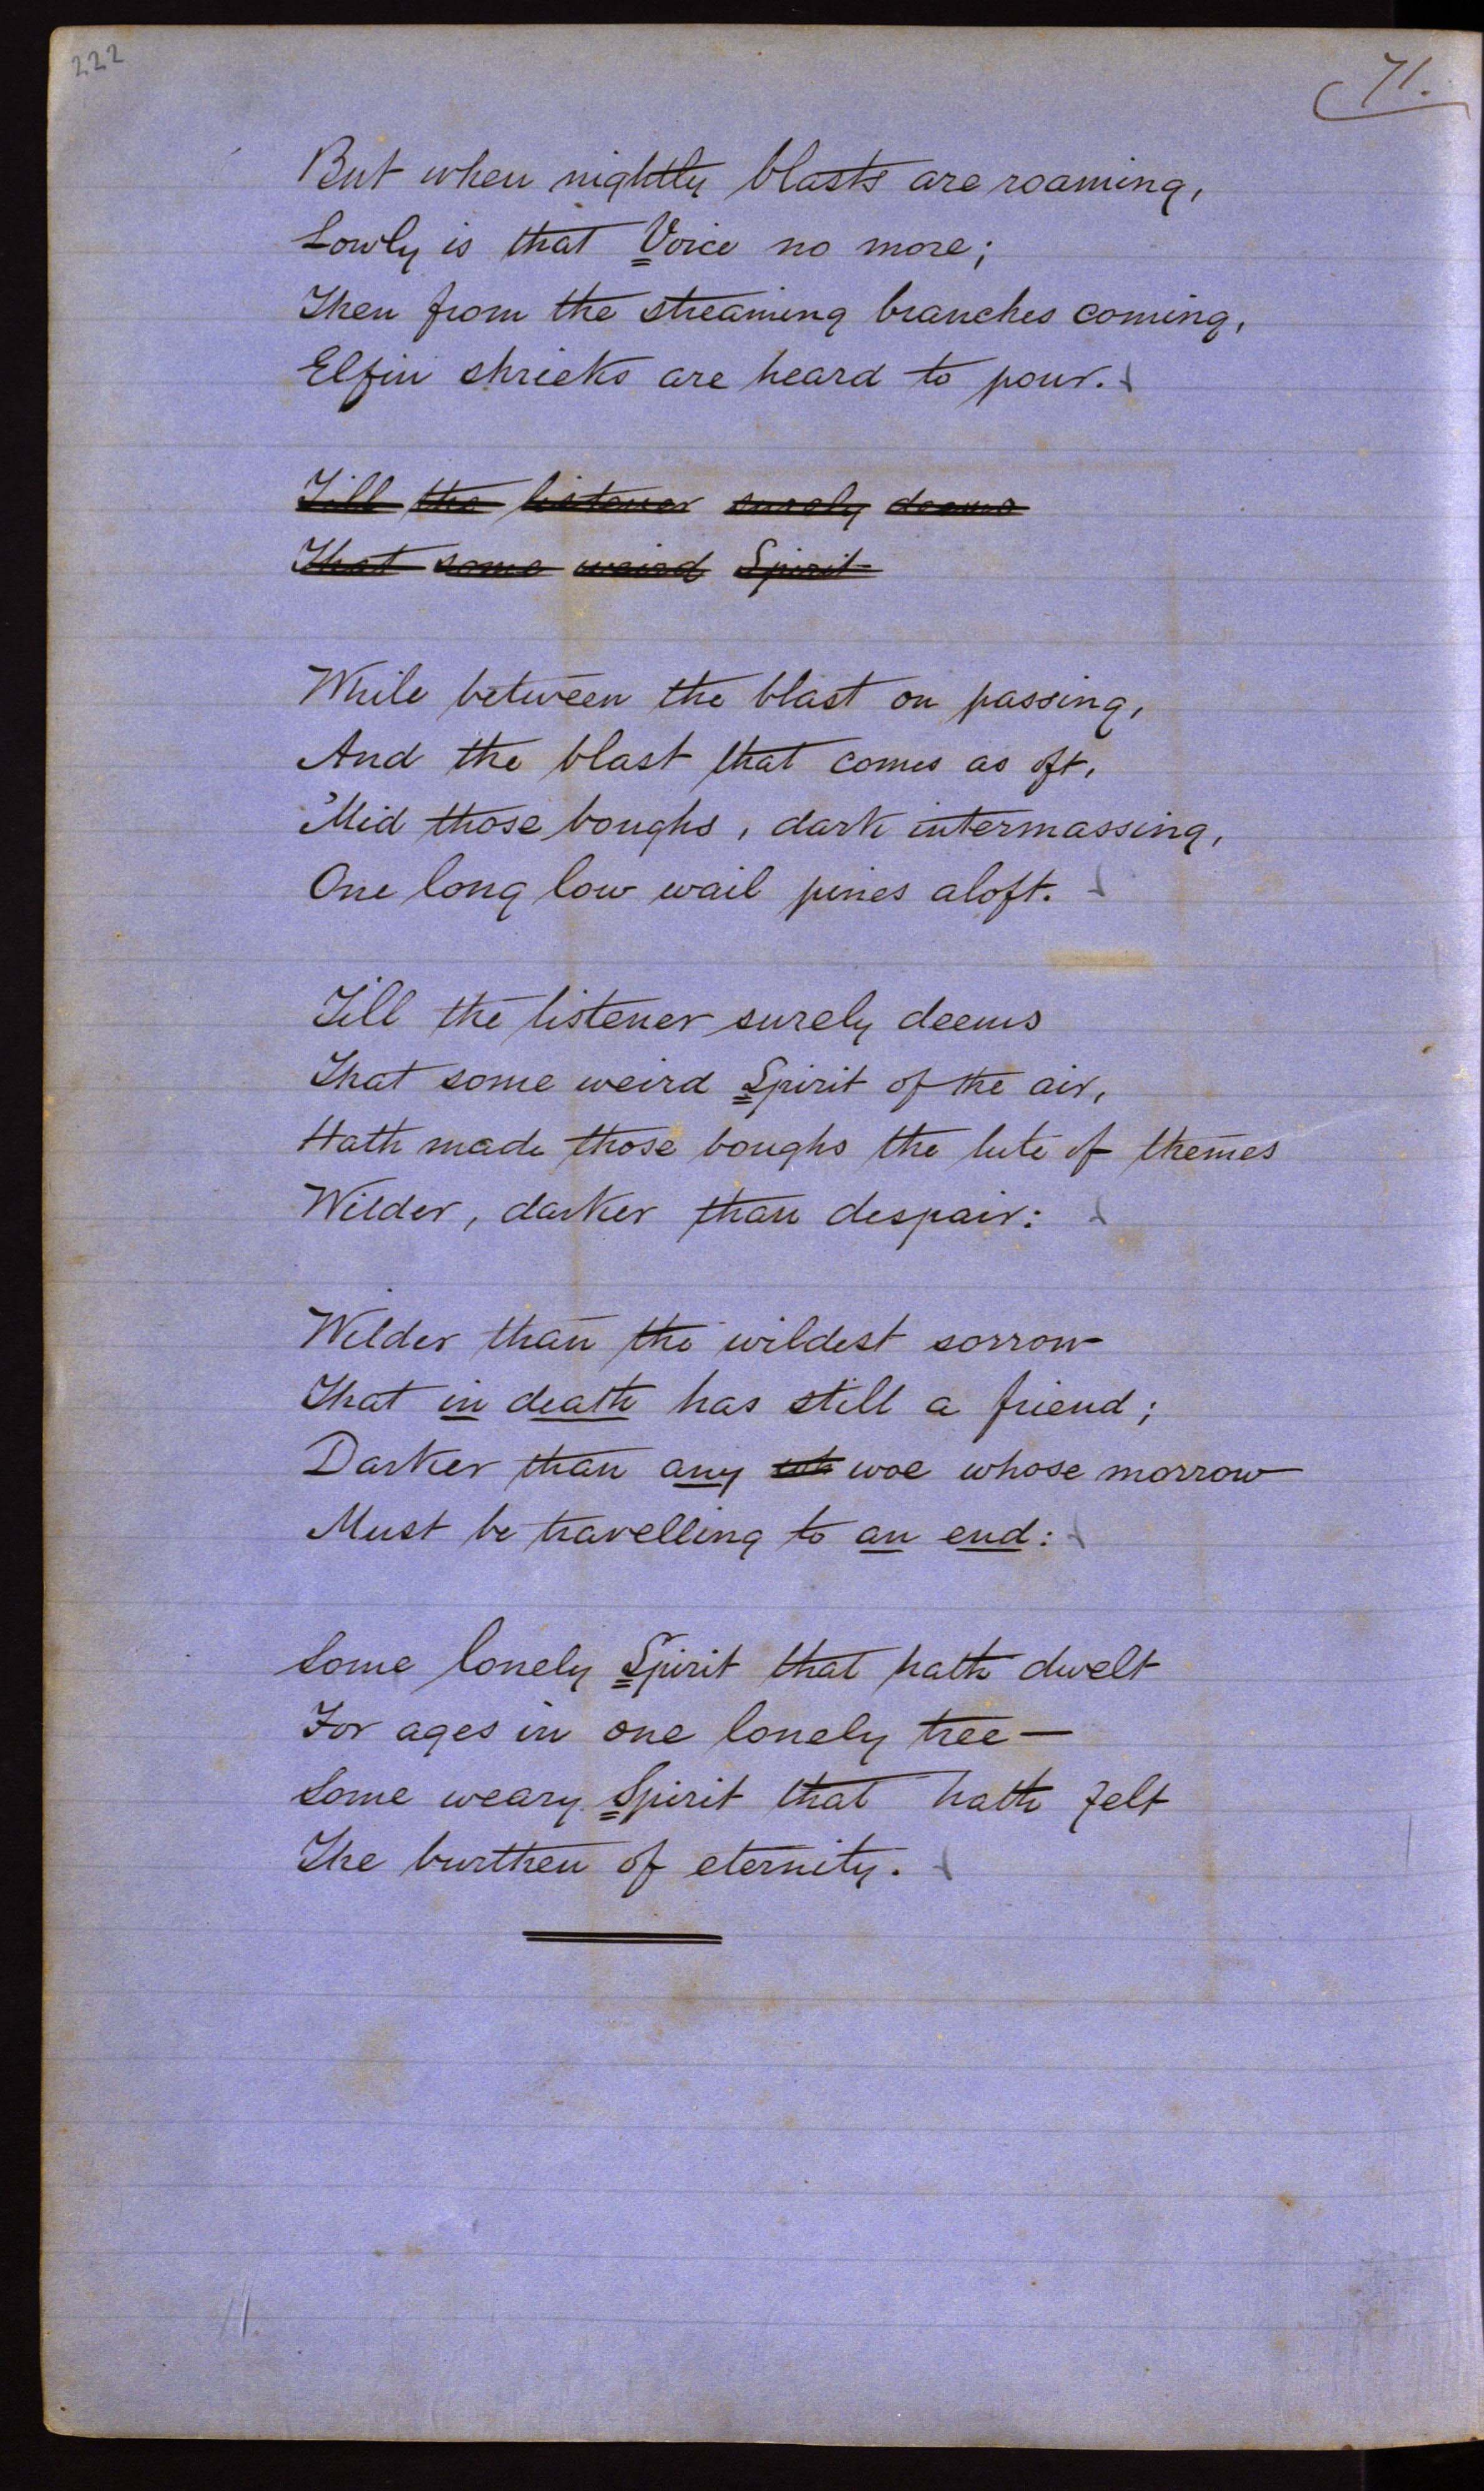 222
71.
But when nightly blasts are roaming,
Lowly is that Voice no more;
Then from the streaming branches coming,
Elfin shrieks are heard to pour.
Till the listener surely deems
That some weird Spirit
While between the blast on passing,
And the blast that comes as oft,
'Mid those boughs, dark intermassing,
One long low wail pines aloft.
Till the listener surely deems
That some weird Spirit of the air,
Hath made those boughs the lute of themes
Wilder, darker than despair:
Wilder than the wildest sorrow
That in death has still a friend;
Darker than any woe whose morrow
Must be travelling to an end:
Some lonely Spirit that hath dwelt
For ages in one lonely tree—
Some weary Spirit that hath felt
The burthen of eternity.